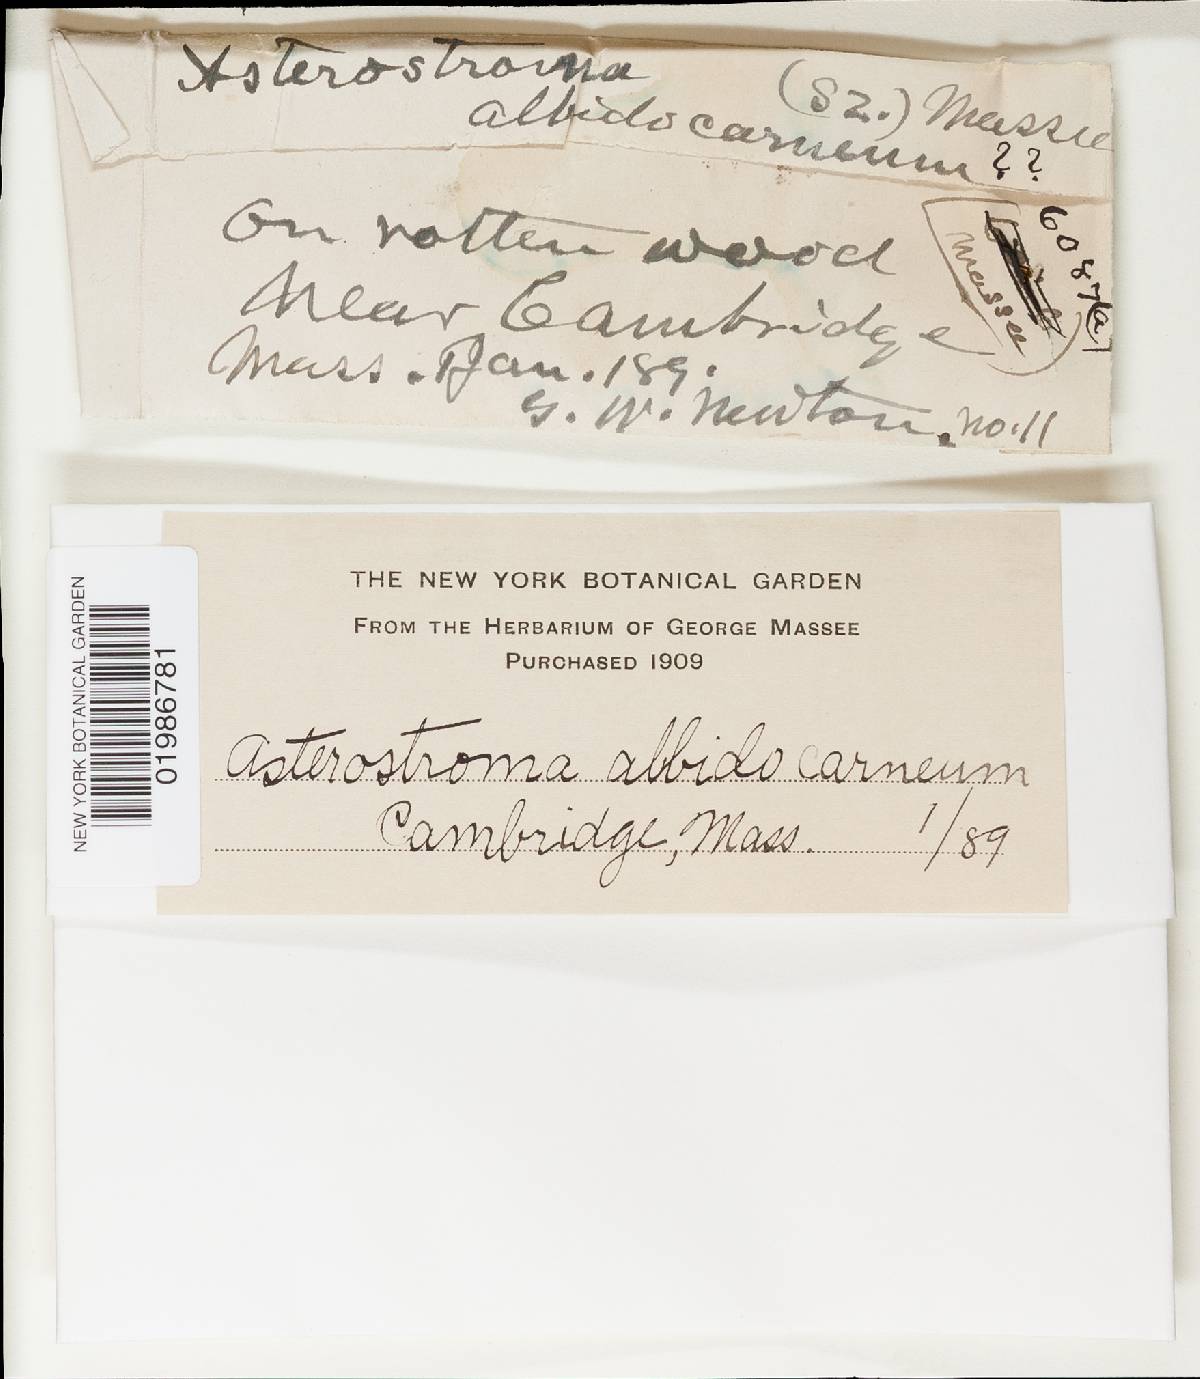 Asterostroma
albido carneum ??
(Sz.) Massee
6087(a)
Massee
on rotten wood
Near Cambridge
Mass. Jan. 189.
G. W. Newton. no. 11
THE NEW YORK BOTANICAL GARDEN
FROM THE HERBARIUM OF GEORGE MASSEE
PURCHASED 1909
Asterostroma albido carneum
Cambridge, Mass. 1/89
NEW YORK BOTANICAL GARDEN
01986781